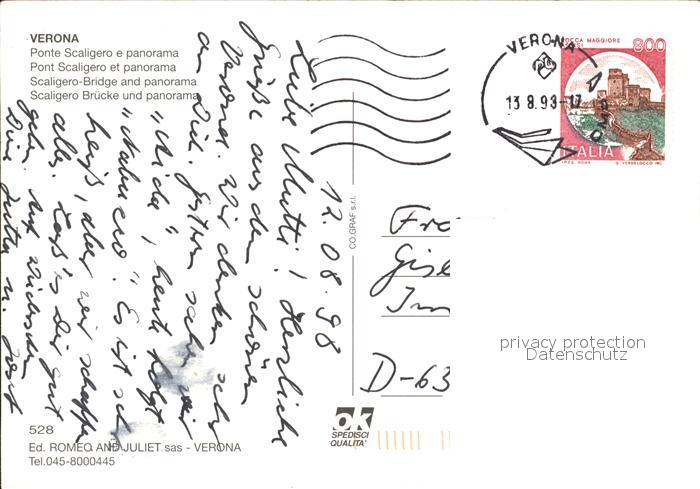 VERONA
Ponte Scaligero e panorama
Pont Scaligero et panorama
Scaligero-Bridge and panorama
Scaligero Brücke und panorama
12.08.98
Liebe Mutti! Herzliche
Grüße aus dem schönen
Verona. Wir denken sehr
an Dich. Gestern sahen wir
"Aida", heute folgt
"Nabucco". Es ist sehr
heiß, aber wir schaffen
alles. Laß's Dir gut
gehen. Auf Wiedersehen
Deine Jutta u.
528
Ed. ROMEO AND JULIET sas - VERONA
Tel.045-8000445
CO.GRAF s.r.l.
ok
SPEDISCI
QUALITA'
VERONA
13 8.98-17
ROCCA MAGGIORE
800
ITALIA
I.P.Z.S. ROMA
Fra
Gise
D-63
privacy protection
Datenschutz